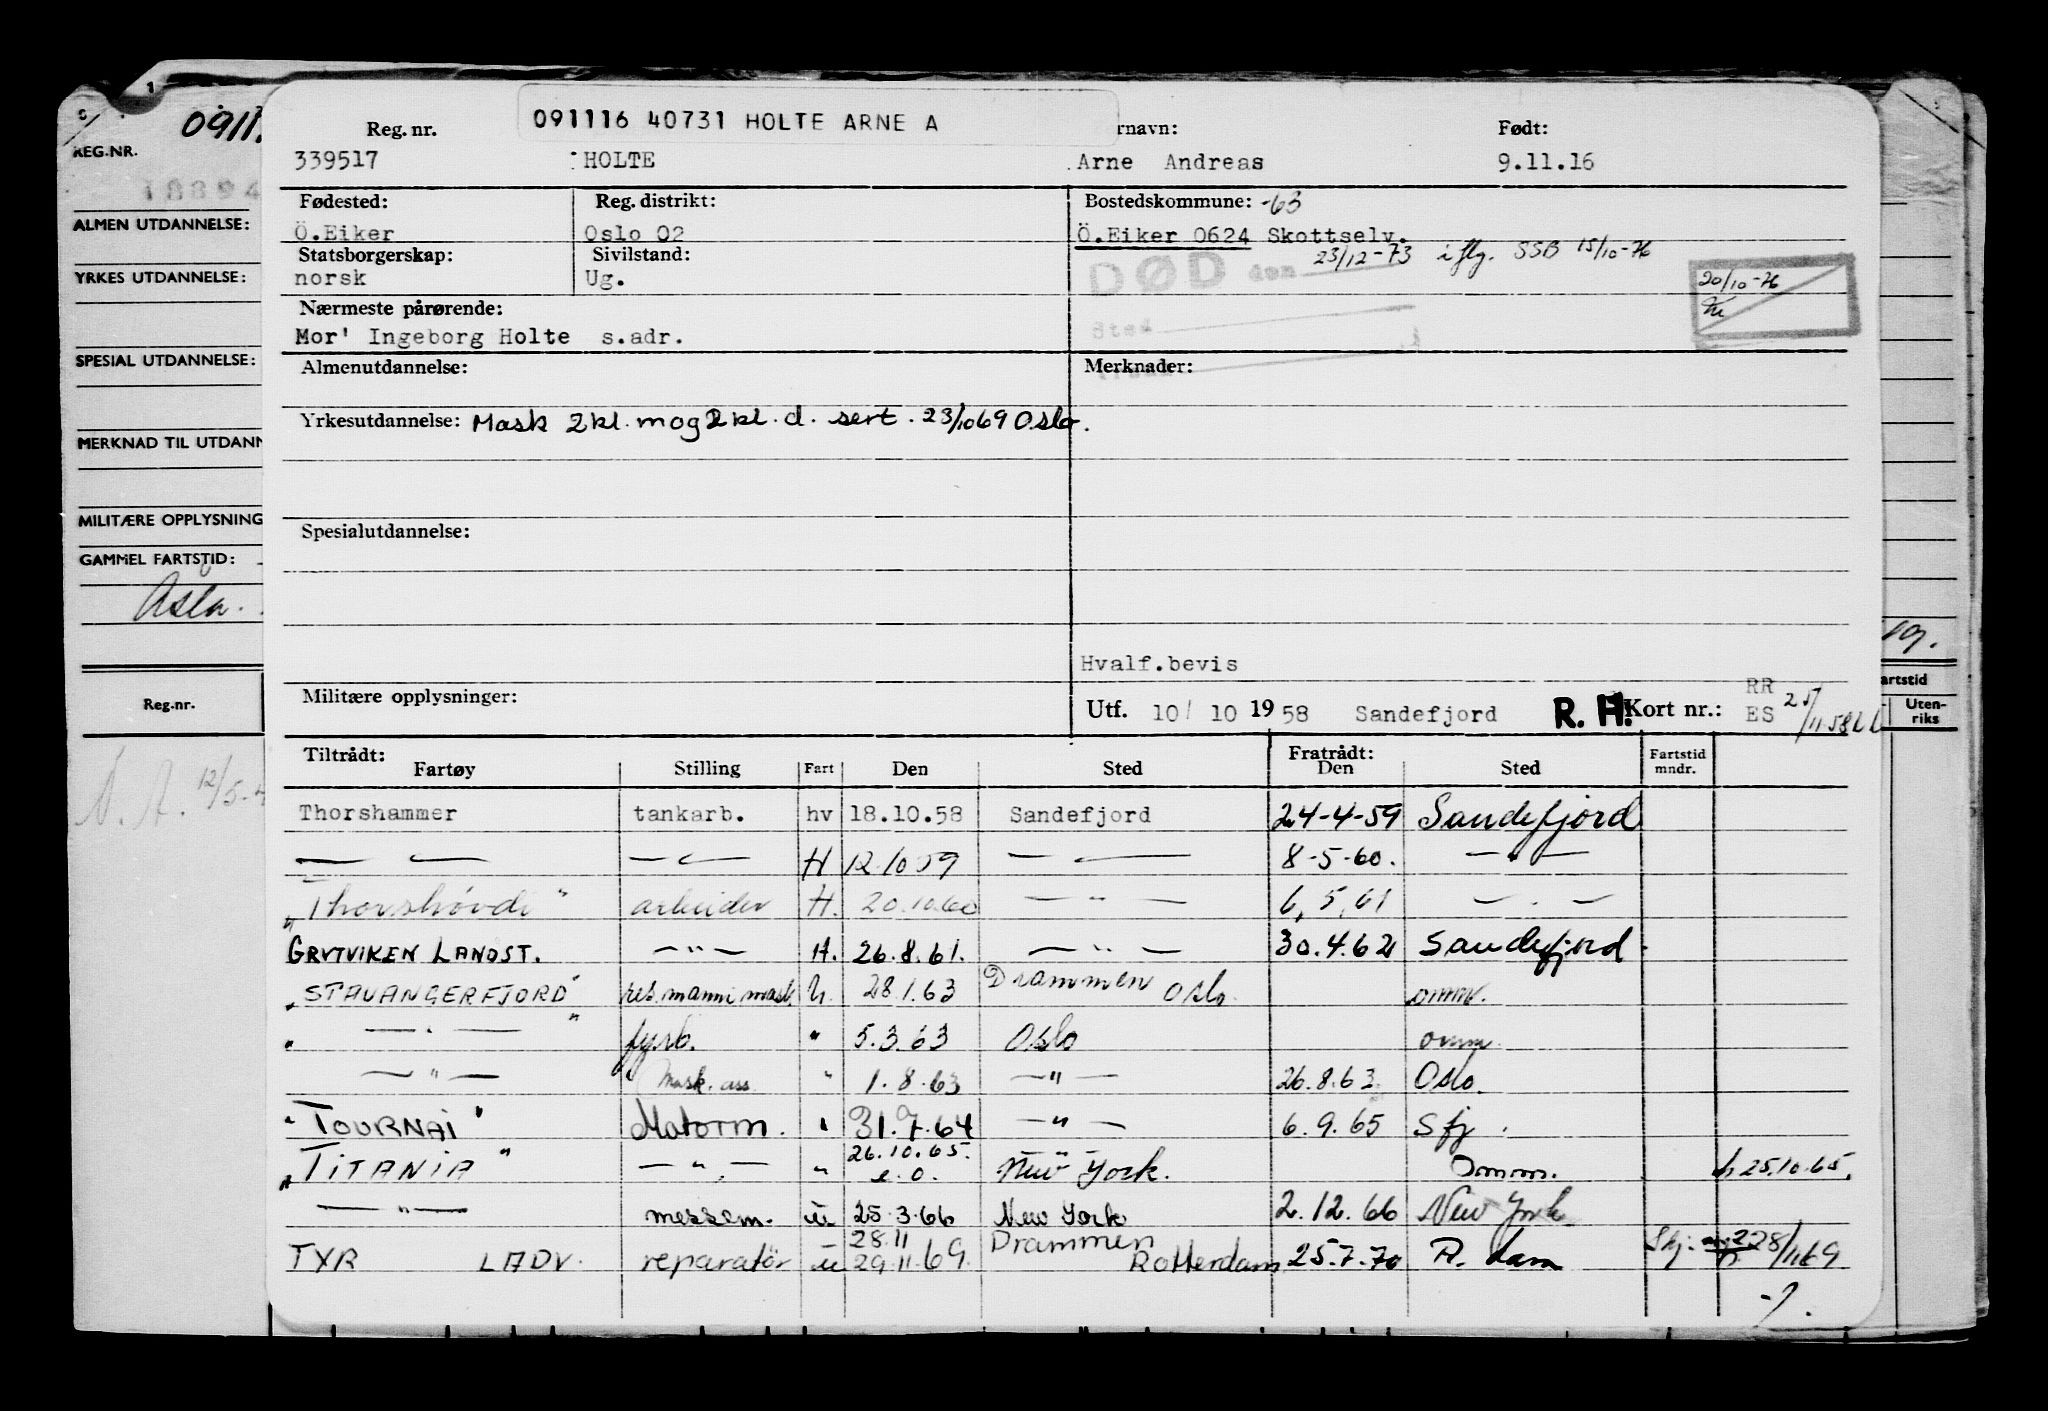 0911.
REG.NR.
18894
ALMEN UTDANNELSE:
YRKES UTDANNELSE:
SPESIAL UTDANNELSE:
MERKNAD TIL UTDANN
MILITÆRE OPPLYSNING
GAMMEL FARTSTID:
Oslo.
Reg.nr.
12/5-4
19.
artstid
Uten-
riks
091116 40731 HOLTE ARNE A
Reg. nr. rnavn: Født:
339517 HOLTE Arne Andreas 9.11.16
Fødested: Reg. distrikt: Bostedskommune: -63
Ö.Eiker Oslo 02 Ö.Eiker 0624 Skottselv.
Statsborgerskap: Sivilstand: 23/12-73 i flg. SSB 15/10-76
norsk Ug. DØD den
20/10-76
Nærmeste pårørende:
Mor' Ingeborg Holte s.adr. Sted
Almenutdannelse: Merknader:
Yrkesutdannelse: Mask 2kl. mog 2kl. d. sert. 23/10 69 Oslo.
Spesialutdannelse:
Hvalf.bevis
Militære opplysninger: Utf. 10/ 10 1958 Sandefjord R. H. Kort nr.: RR ES 25/11.58
Tiltrådt: Fratrådt:
Fartøy Stilling Fart Den Sted Den Sted Fartstid mndr.
Thorshammer tankarb. hv 18.10.58 Sandefjord 24-4-59 Sandefjord
— " — — " — H 12.10 59 — " — 8-5-60. — " —
"Thorshövdi" arbeider H. 20.10.60 — " — 6,5,61 — " —
GRYTVIKEN LANDST. — " — H. 26.8.61. — " — 30.4.62 Sandefjord
"STAVANGERFJORD" res. mann i mask. u. 28.1.63 Drammen Oslo. omm.
" — " — " fyrb. " 5.3.63 Oslo omm.
— " — Mask. ass. " 1.8.63 — " — 26.8.63 Oslo.
"TOURNAI" Motorm. " 31.7.64 — " — 6.9.65 Sfj.
"TITANIA" — " — " 26.10.65. e.o. New York. Omm. fr 25.10.65.
— " — messem. u 25.3.66 New York 2.12.66 New York
TYR LADV. reparatör u 28.11 29.11.69. Drammen Rotterdam 25.7.70 R. dam 28/11 69